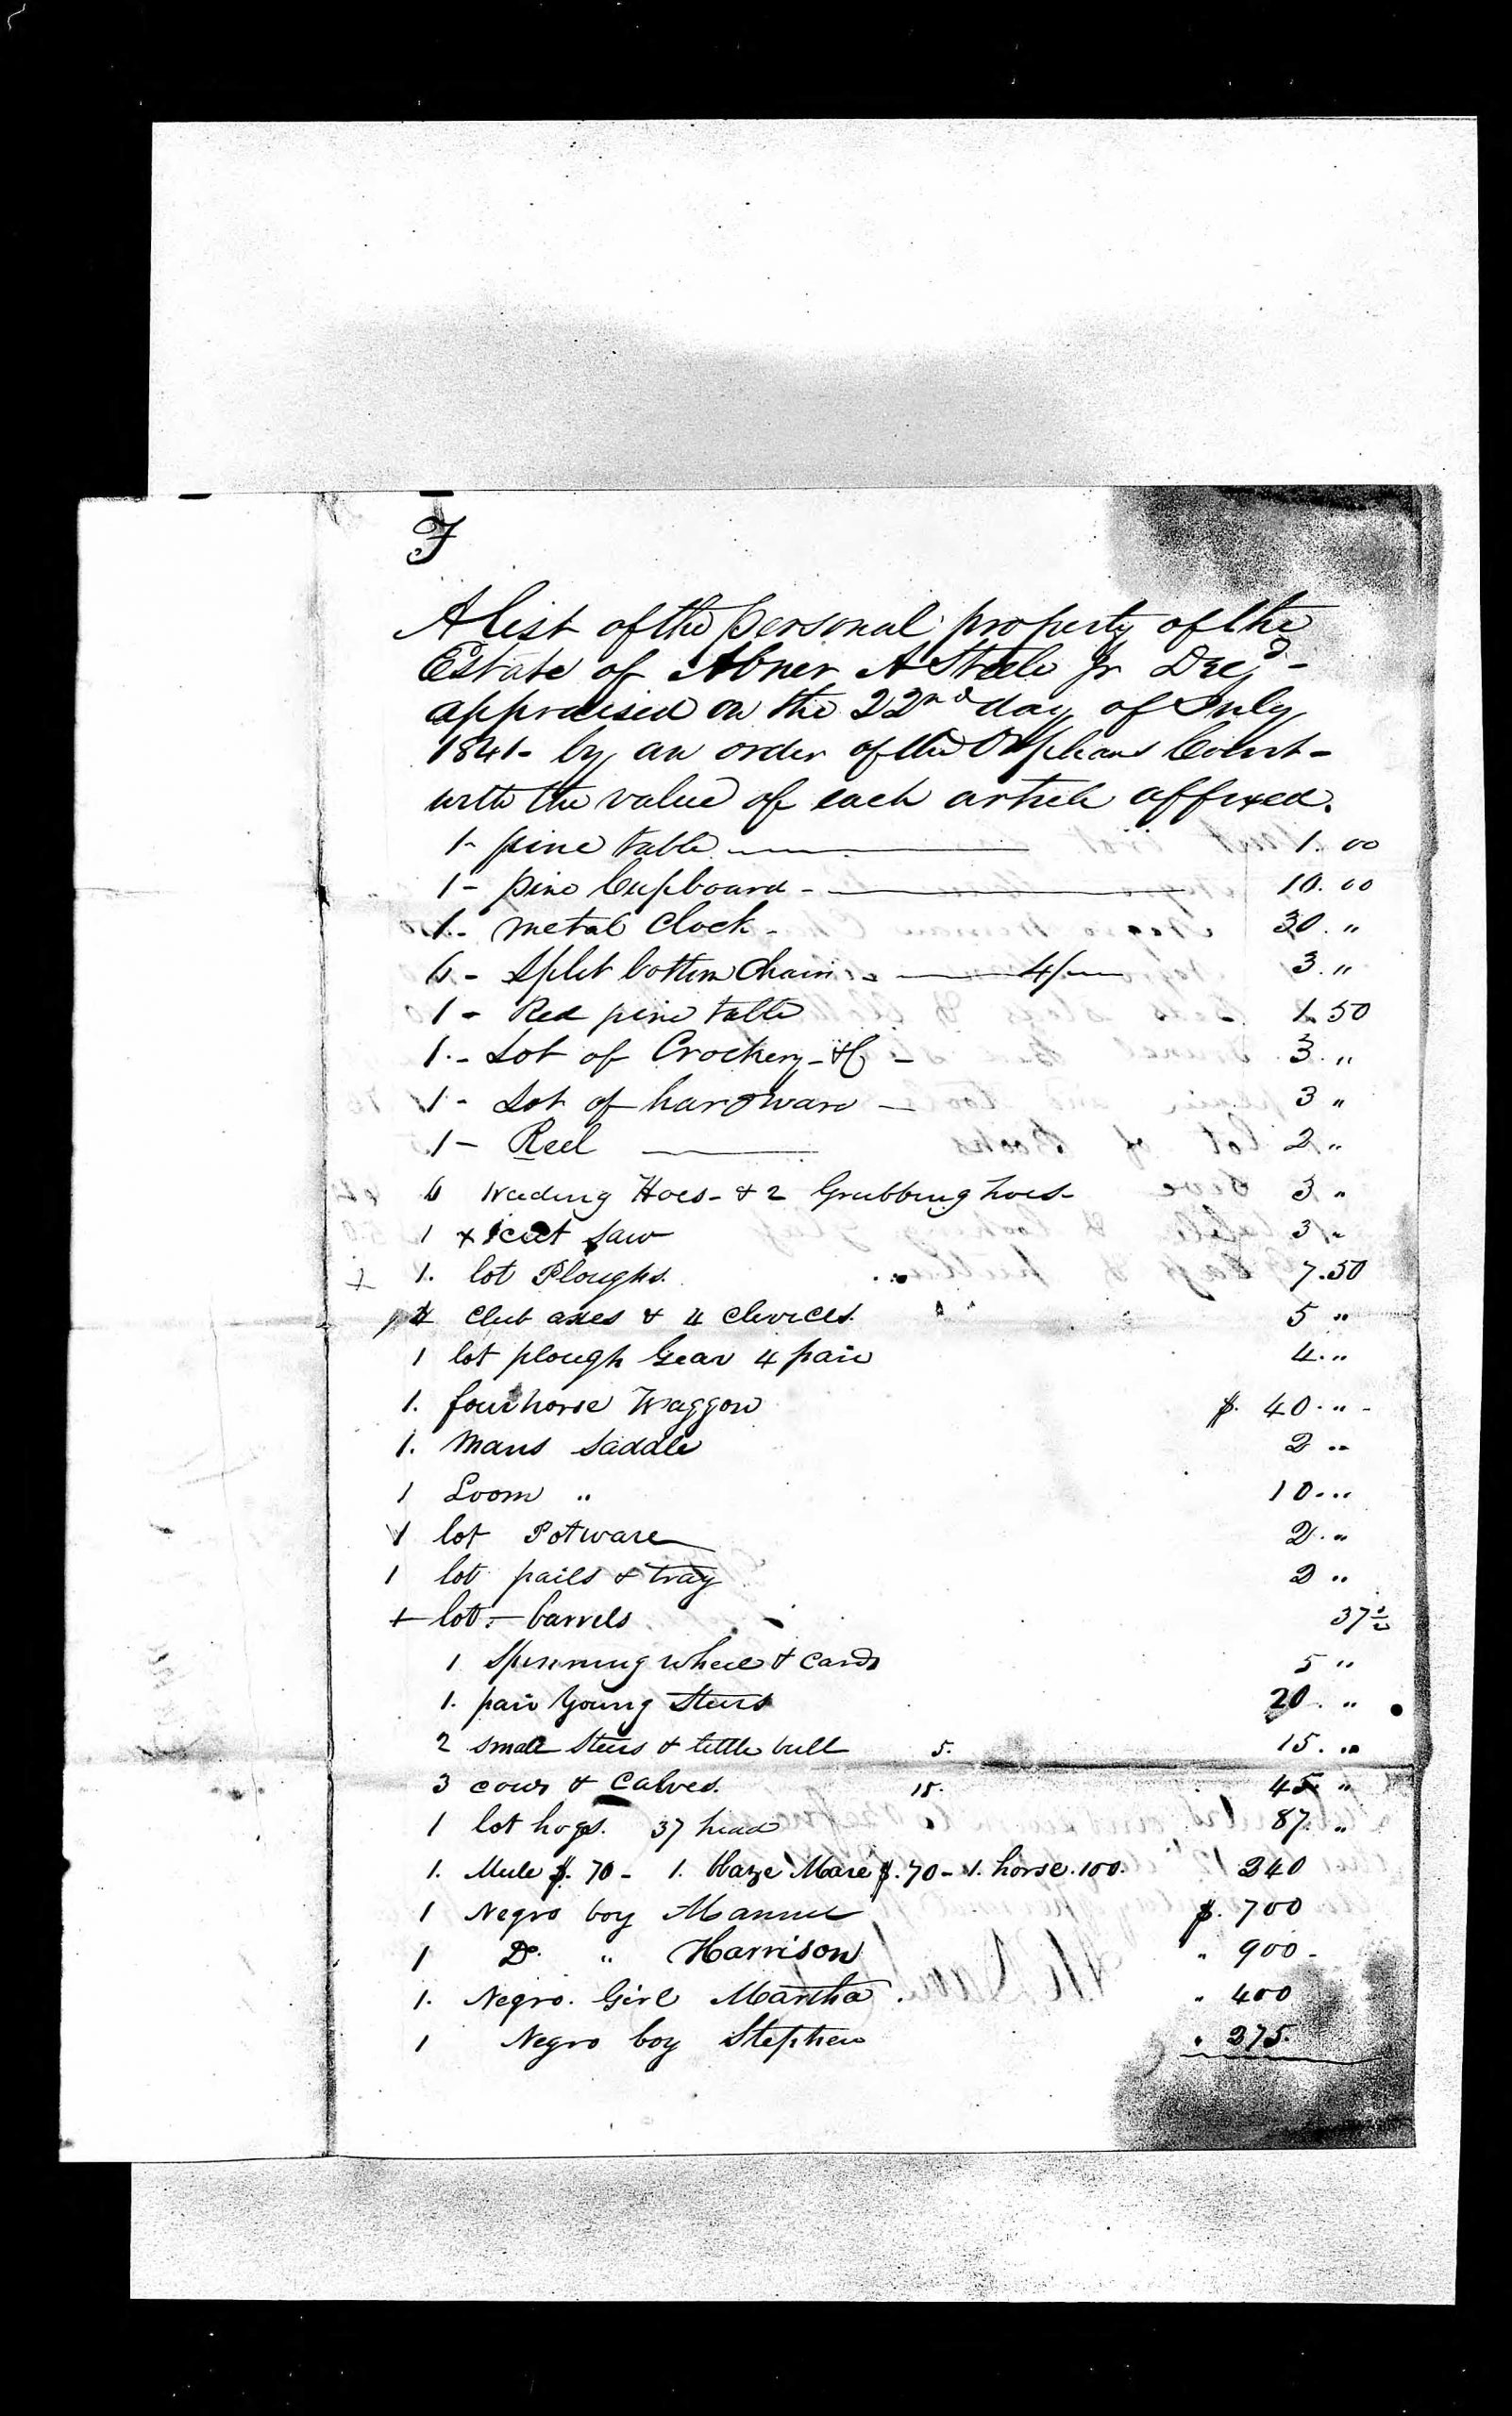 F
A list of the personal property of the
Estate of Abner A Steele Jr Decd -
appraised on the 22nd day of July
1841 - by an order of the Orphans Court -
with the value of each article affixed.
1 - pine table 1.00
1 - pine Cupboard - 10.00
1 - metal Clock - 30. "
6 - Split bottom Chairs - 4/ 3. "
1 - Red pine table 1.50
1. - Lot of Crockery - &C - 3. "
1 - Lot of hardware - 3 "
1 - Reel 2 "
6 Weeding Hoes - & 2 Grubbing hoes - 3 "
1 + cut saw 3 "
1. lot Ploughs. 7.50
4 Club axes & 4 clevices. 5 "
1 lot plough Gear 4 pair 4. "
1. four horse Waggon $. 40. " -
1. Mans Saddle 2 "
1 Loom " 10. "
1 lot Potware 2. "
1 lot pails & tray 2 "
+ lot - barrels 37 1/2
1 Spinning wheel & cards 5 "
1. pair Young Steers 20. "
2 small Steers & little bull 5. 15. "
3 cows & Calves. 15. 45. "
1 lot hogs. 37 head 87. "
1. Mule $. 70 - 1. Blaze Mare $. 70 - 1. horse. 100. 240
1 Negro boy Manuel $. 700
1 Do. " Harrison " 900 -
1. Negro. Girl Martha. " 400
1 Negro boy Stephen " 275.